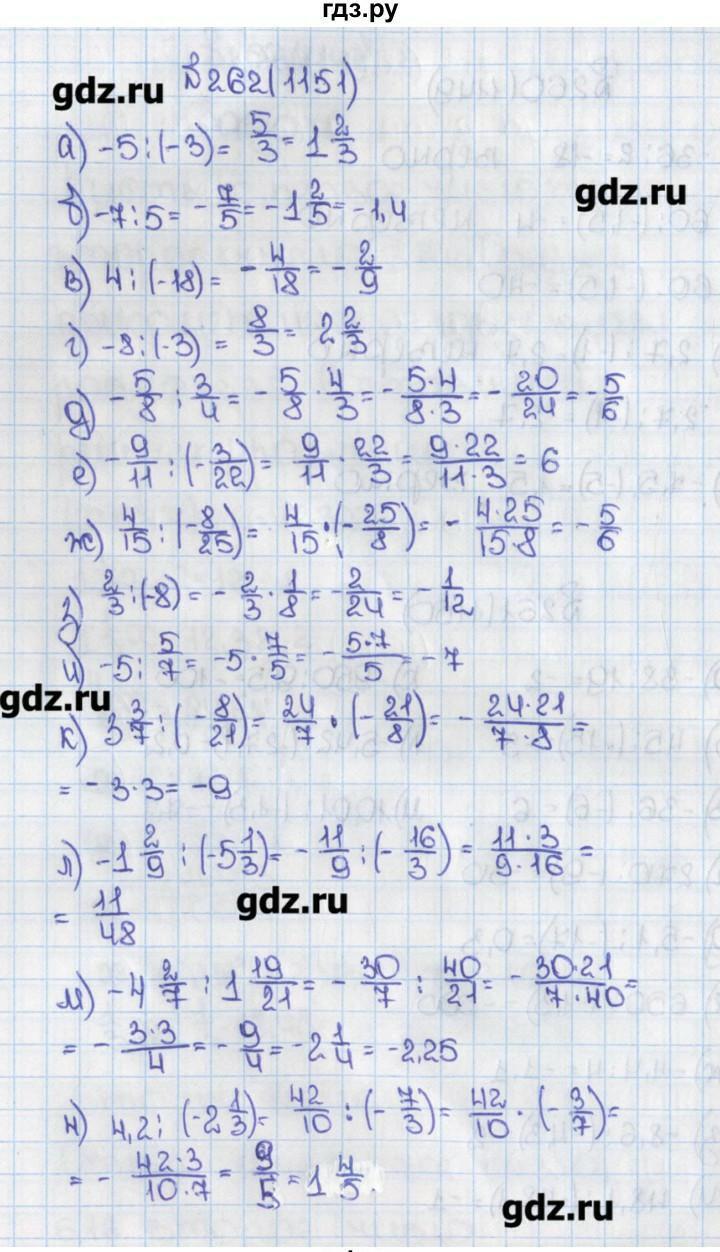 гдз.ру
№262(1151)
gdz.ru
а) -5:(-3)= 5/3 = 1 2/3
gdz.ru
б) -7:5= -7/5= -1 2/5= -1,4
в) 4:(-18)= -4/18= -2/9
г) -8:(-3) = 8/3= 2 2/3
д) -5/8 : 3/4= -5/8 · 4/3= -5·4/8·3= -20/24= -5/6
е) -9/11 : (-3/22)= 9/11 · 22/3= 9·22/11·3= 6
ж) 4/15 : (-8/25)= 4/15 · (-25/8)= - 4·25/15·8= -5/6
з) 2/3 : (-8)= -2/3 · 1/8= -2/24= -1/12
и) -5: 5/7= -5 · 7/5= - 5·7/5= -7
gdz.ru
к) 3 3/7 : (-8/21)= 24/7 · (-21/8)= - 24·21/7·8=
= -3·3= -9
л) -1 2/9 : (-5 1/3)= -11/9 : (-16/3)= 11·3/9·16=
= 11/48
gdz.ru
м) -4 2/7 : 1 19/21= -30/7 : 40/21= - 30·21/7·40=
= - 3·3/4= -9/4= -2 1/4= -2,25
н) 4,2: (-2 1/3)= 42/10 : (-7/3)= 42/10 · (-3/7)=
= - 42·3/10·7= 9/5= 1 4/5.
gdz.ru